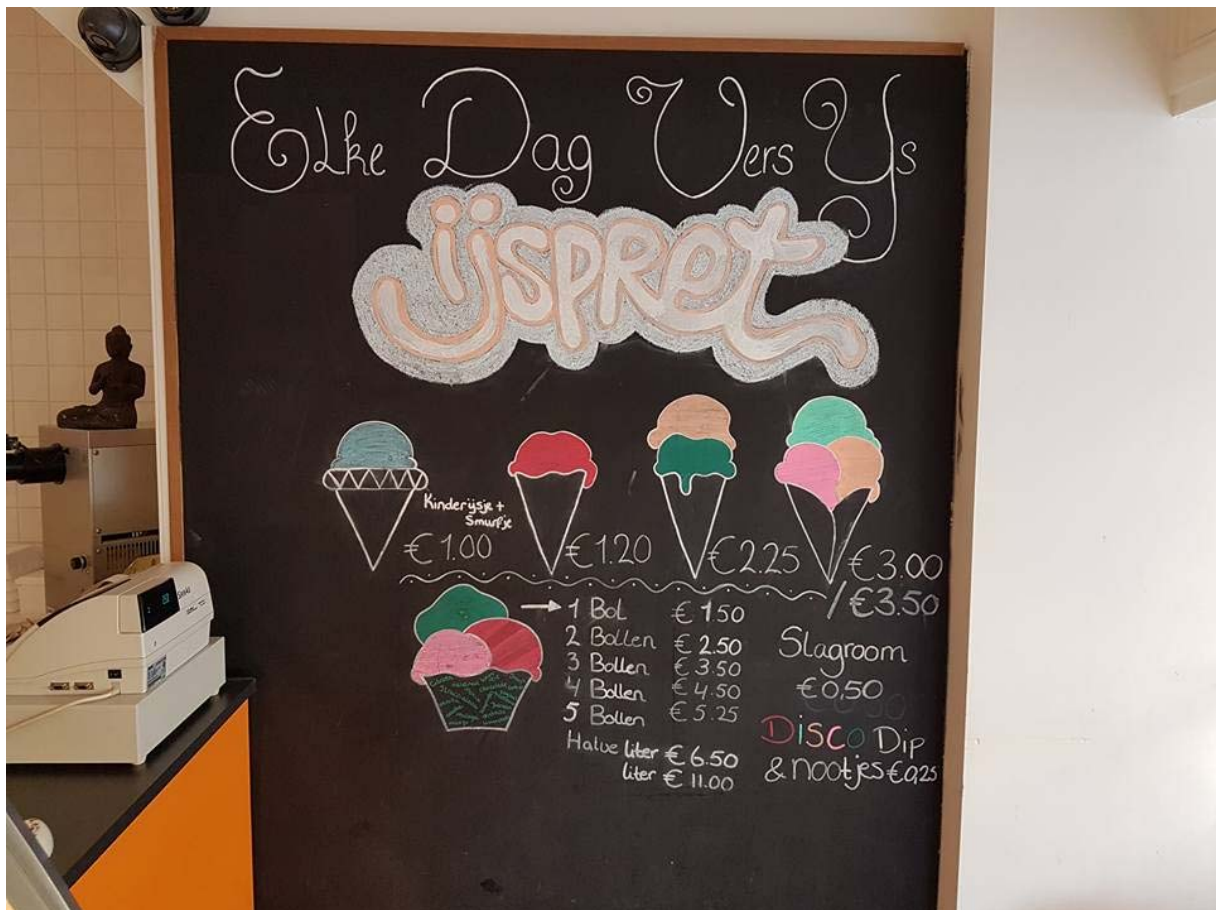 Elke Dag Vers Ys
ijspret
Kinderijsje +
Smurfje
€ 1.00
€ 1.20
€ 2.25
€ 3.00
/ € 3.50
1 Bol € 1.50
2 Bollen € 2.50
3 Bollen € 3.50
4 Bollen € 4.50
5 Bollen € 5.25
Halve liter € 6.50
liter € 11.00
Slagroom
€ 0,50
Disco Dip
& nootjes € 0,25